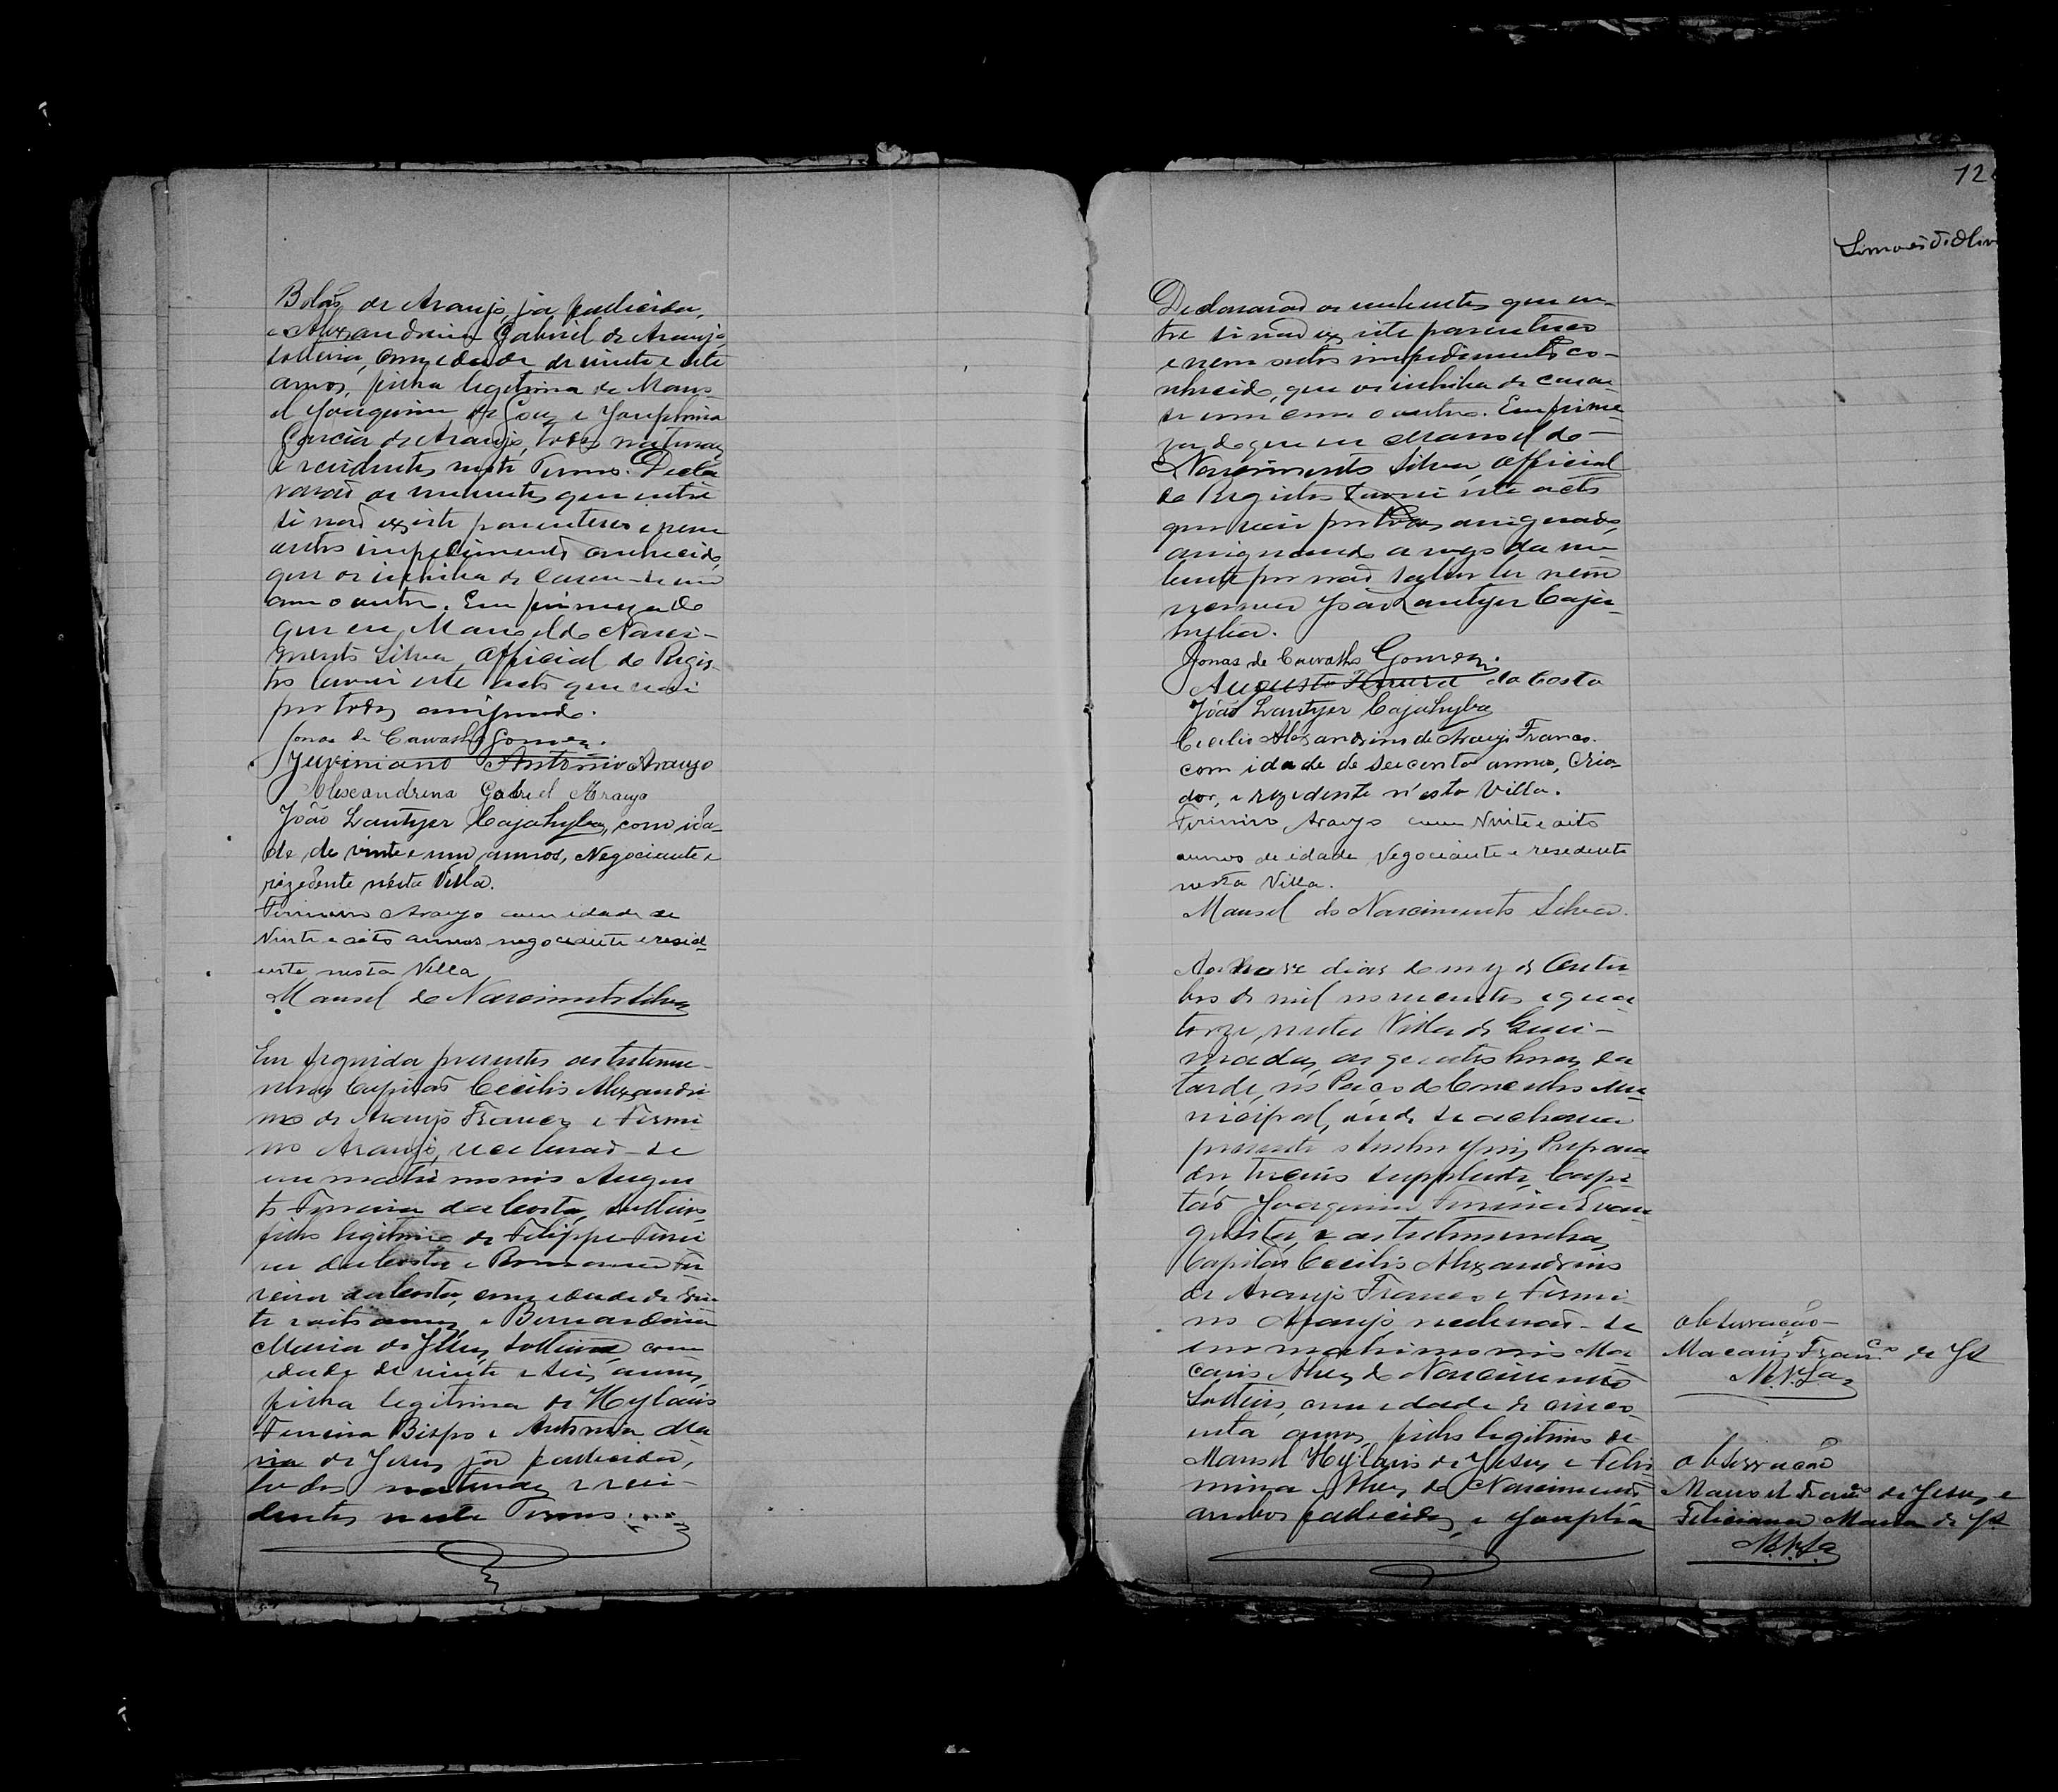 de Araujo, já fallecida,
e Alexandrina Gabriel de Araujo,
solteira, com edade de vinte e sete
annos, filha legitima de Mano-
el Joaquim de e Josephina
Garcia de Araujo, todos naturaes
e residentes neste Termo. Decla
rarão os nubentes que entre
si não existe parentesco e nem
outro impedimento conhecido,
que os inhiba de casar-se um
com o outro. Em firmeza do
que eu, Manoel do Nasci-
mento Silva, Official do Regis-
tro lavrei este acto que vai
por todos assignado.
Jonas de Carvalho Gomes.
Juviniano Antonio Araujo
Alexandrina Gabriel Araujo
João Lantyer Cajahyba, com ida-
de de vinte e um annos, Negociante e
rezedente nésta Villa.
Firmino Araujo com edade de
Vinte e oito annos negociante e resid-
ente nesta Villa
Manoel do Nascimento Silva
Em seguida presentes as testemu-
nhas Capitão Cecilio Alexandri
no de Araujo Franco e Firmi-
no Araujo, receberão-se
em matrimonio Augus
to Ferreira da Costa, solteiro,
filho legitimo de Filippe Ferrei
ra da Costa e Romana Fer
reira da Costa, com edade de vin
te e oito annos e Bernardina
Maria de Jesus, solteira, com
edade de vinte e seis annos,
filha legitima de Hylario
Ferreira Bispo e Antonia Ma
ria de Jesus, já fallecida,
todos naturaes e resi-
dentes neste Termo
12
Simões d'Oliv
Declararão os nubentes que en-
tre si não existe parentesco
e nem outro impedimento co-
nhecido, que os inhiba de casar-
se um com o outro. Em firme
za do que eu Manoel do
Nascimento Silva, Official
do Registro lavrei este acto
que vai por todos assignado,
assignando a rogo da nu-
bente por não saber ler nem
escrever João Lantyer Caja-
hyba.
Jonas de Carvalho Gomes.
Augusto Ferreira da Costa
João Lantyer Cajahyba
Cecilio Alexandrino de Araujo Franco.
com idade de secenta annos, Cria-
dor, e rezidente n'esta Villa.
Firmino Araujo com Vinte e oito
annos de idade Negociante e resedente
nesta Villa.
Manoel do Nascimento Silva.
Aos dias do mez de Outu-
bro de mil novecentos e qua
torze, nesta Villa de Quei-
madas, as quatro horas da
tarde, no Paço do Conselho Mu-
nicipal, onde se achava
presente o Senhor Juiz Prepara
dor, terceiro supplente, Capi-
tão Joaquim Ferreira Evan
gelista, e as testemunhas,
Capitão Cecilio Alexandrino
de Araujo Franco e Firmi-
no Araujo receberão-se
em matrimonio Ma
cario Alves do Nascimento
Solteiro, com edade de cinco-
enta annos, filho legitimo de
Manoel Hylario de Jesus e Felis-
mina Alves do Nascimento
ambos fallecidos, e Josepha
observação
Macario Franco de Js
M.N.Sa
observação
Manoel Franco de Jesus e
Feliciana Maria de Js
M.N.Sa